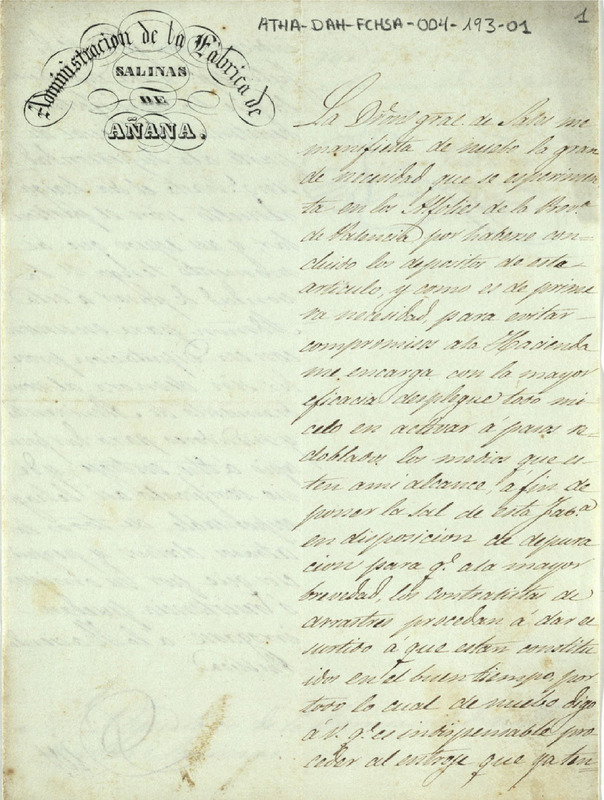 ATHA-DAH-FCHSA-004-193-01
1
Administracion de la Fabrica de
SALINAS
DE
AÑANA.
La Dir.on gral. de Sales me
manifiesta de nuebo la gran
de necesidad que se esperimen
ta en los Alfolies de la Prov.a
de Palencia por haberse con=
cluido los depositos de este
articulo, y como es de prime
ra necesidad, para evitar
compromisos ala Hacienda
me encarga con la mayor
eficacia despliegue todo mi
celo en activar á pasos re-
doblados los medios que es-
ten ami alcance, a fin de
poner la sal de esta Fab.a
en disposicion de depura
cion para q.e ala mayor
brevedad, los contratistas de
arrastres procedan á dar el
surtido á que estan constitu
idos en el buen tiempo, por
todo lo cual de nuebo digo
á V. q.e es indispensable pro
ceder al entroje que ya ten=